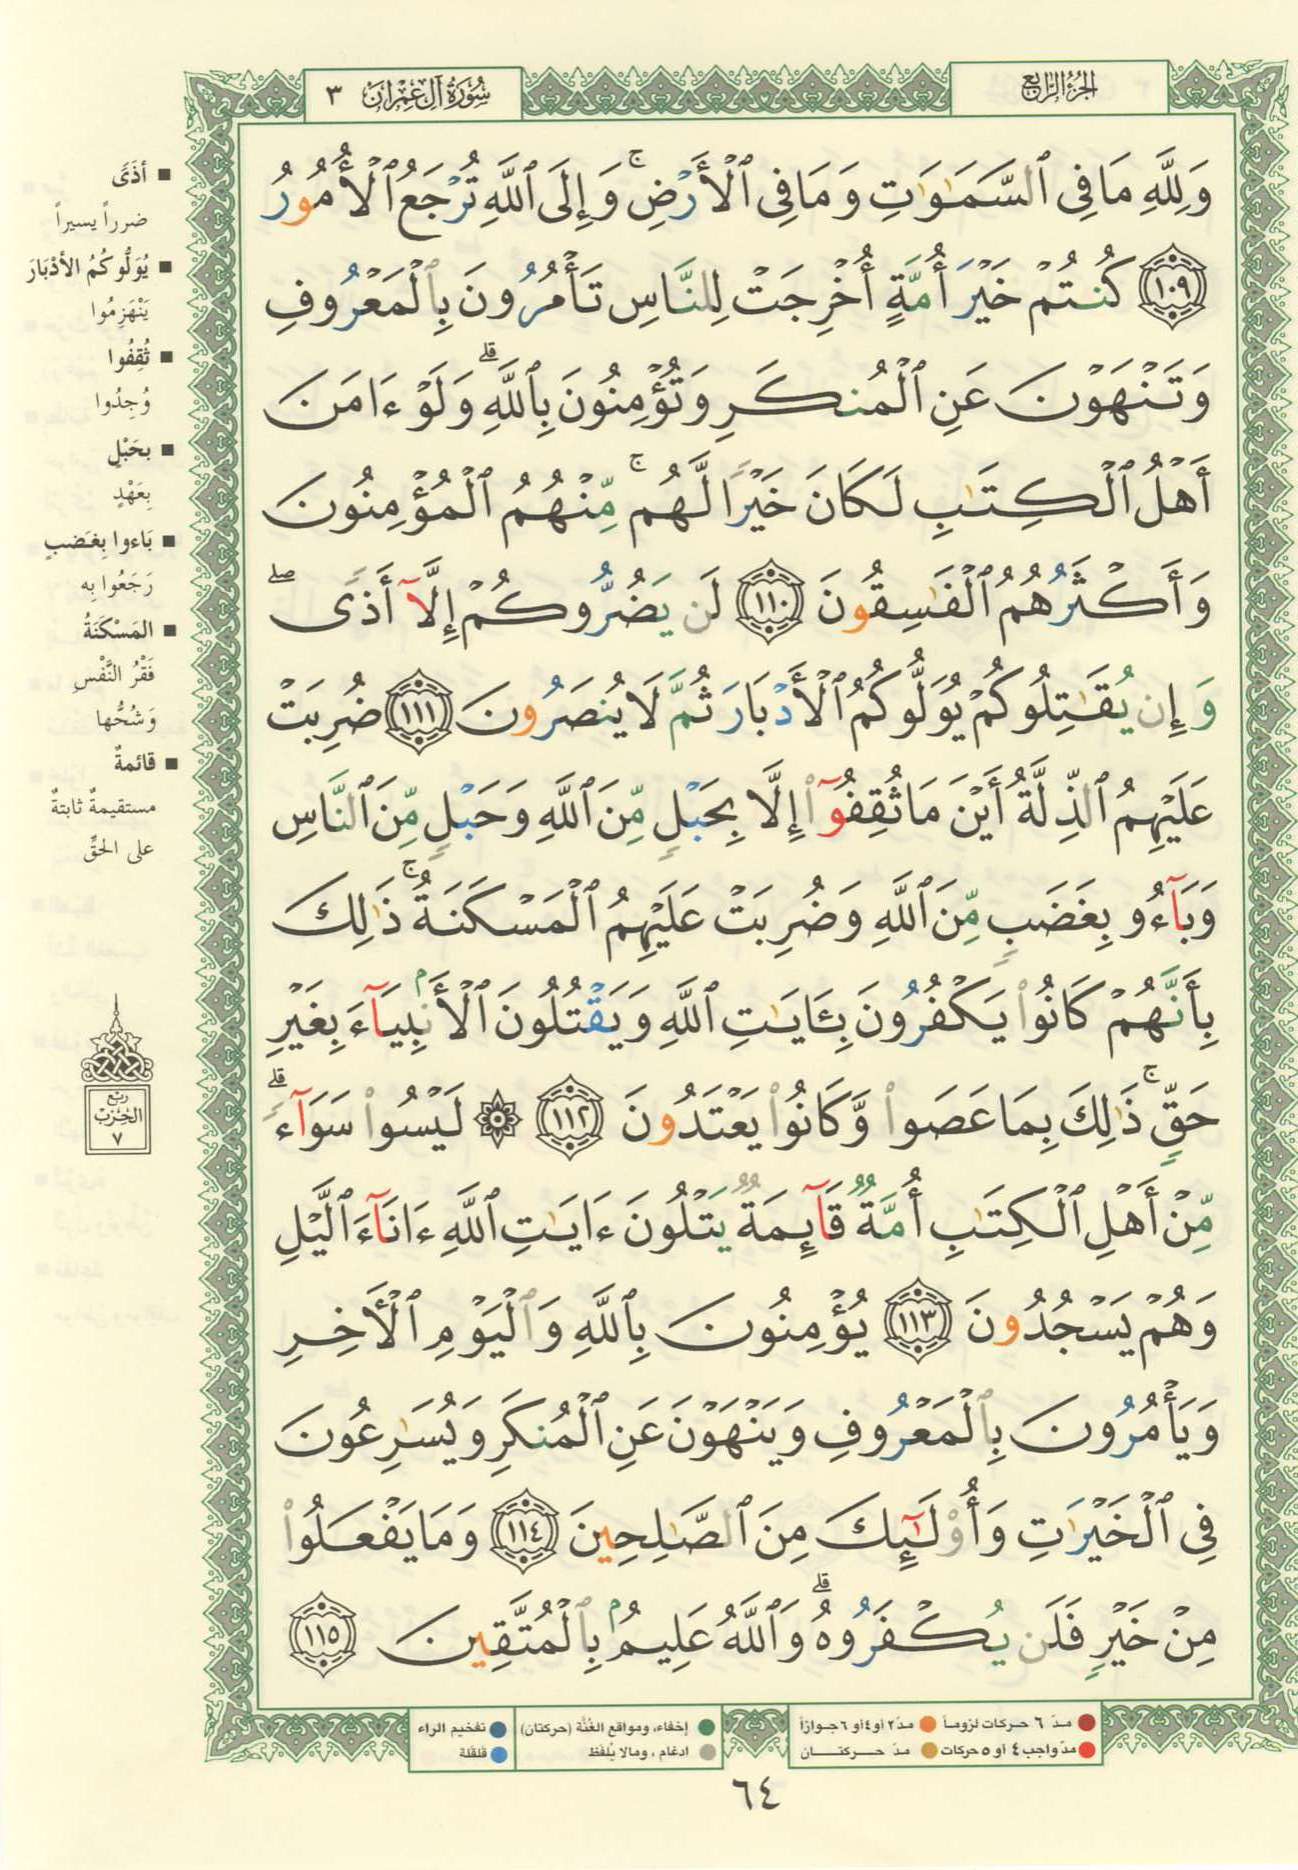 الجزء الرابع
سورة آل عمران ٣
وَلِلَّهِ مَا فِى ٱلسَّمَٰوَٰتِ وَمَا فِى ٱلْأَرْضِ ۚ وَإِلَى ٱللَّهِ تُرْجَعُ ٱلْأُمُورُ
١٠٩ كُنتُمْ خَيْرَ أُمَّةٍ أُخْرِجَتْ لِلنَّاسِ تَأْمُرُونَ بِٱلْمَعْرُوفِ
وَتَنْهَوْنَ عَنِ ٱلْمُنكَرِ وَتُؤْمِنُونَ بِٱللَّهِ ۗ وَلَوْ ءَامَنَ
أَهْلُ ٱلْكِتَٰبِ لَكَانَ خَيْرًا لَّهُم ۚ مِّنْهُمُ ٱلْمُؤْمِنُونَ
وَأَكْثَرُهُمُ ٱلْفَٰسِقُونَ ١١٠ لَن يَضُرُّوكُمْ إِلَّآ أَذًى ۖ
وَإِن يُقَٰتِلُوكُمْ يُوَلُّوكُمُ ٱلْأَدْبَارَ ثُمَّ لَا يُنصَرُونَ ١١١ ضُرِبَتْ
عَلَيْهِمُ ٱلذِّلَّةُ أَيْنَ مَا ثُقِفُوٓا۟ إِلَّا بِحَبْلٍ مِّنَ ٱللَّهِ وَحَبْلٍ مِّنَ ٱلنَّاسِ
وَبَآءُو بِغَضَبٍ مِّنَ ٱللَّهِ وَضُرِبَتْ عَلَيْهِمُ ٱلْمَسْكَنَةُ ۚ ذَٰلِكَ
بِأَنَّهُمْ كَانُوا۟ يَكْفُرُونَ بِـَٔايَٰتِ ٱللَّهِ وَيَقْتُلُونَ ٱلْأَنۢبِيَآءَ بِغَيْرِ
حَقٍّ ۚ ذَٰلِكَ بِمَا عَصَوا۟ وَّكَانُوا۟ يَعْتَدُونَ ١١٢ ۞ لَيْسُوا۟ سَوَآءً ۗ
مِّنْ أَهْلِ ٱلْكِتَٰبِ أُمَّةٌ قَآئِمَةٌ يَتْلُونَ ءَايَٰتِ ٱللَّهِ ءَانَآءَ ٱلَّيْلِ
وَهُمْ يَسْجُدُونَ ١١٣ يُؤْمِنُونَ بِٱللَّهِ وَٱلْيَوْمِ ٱلْأَخِرِ
وَيَأْمُرُونَ بِٱلْمَعْرُوفِ وَيَنْهَوْنَ عَنِ ٱلْمُنكَرِ وَيُسَٰرِعُونَ
فِى ٱلْخَيْرَٰتِ وَأُو۟لَٰٓئِكَ مِنَ ٱلصَّٰلِحِينَ ١١٤ وَمَا يَفْعَلُوا۟
مِنْ خَيْرٍ فَلَن يُكْفَرُوهُ ۗ وَٱللَّهُ عَلِيمٌۢ بِٱلْمُتَّقِينَ ١١٥
■ أَذًى
ضرراً يسيراً
■ يُوَلُّوكُمُ الأَدْبَارَ
يَنْهَزِمُوا
■ ثُقِفُوا
وُجِدُوا
■ بحَبْلٍ
بِعَهْدٍ
■ بَاءوا بِغَضَبٍ
رَجَعُوا بِه
■ المَسْكَنَةُ
فَقْرُ النَّفْسِ
وَشُحُّها
■ قائمةٌ
مستقيمةٌ ثابتةٌ
على الحقِّ
ربع
الحزب
٧
مدّ ٦ حركات لزوماً مدّ ٢ أو ٤ أو ٦ جوازاً
مدّ واجب ٤ أو ٥ حركات مدّ حركتان
إخفاء، ومواقع الغنَّة (حركتان)
ادغام، وما لا يُلفَظ
تفخيم الراء
قلقلة
٦٤